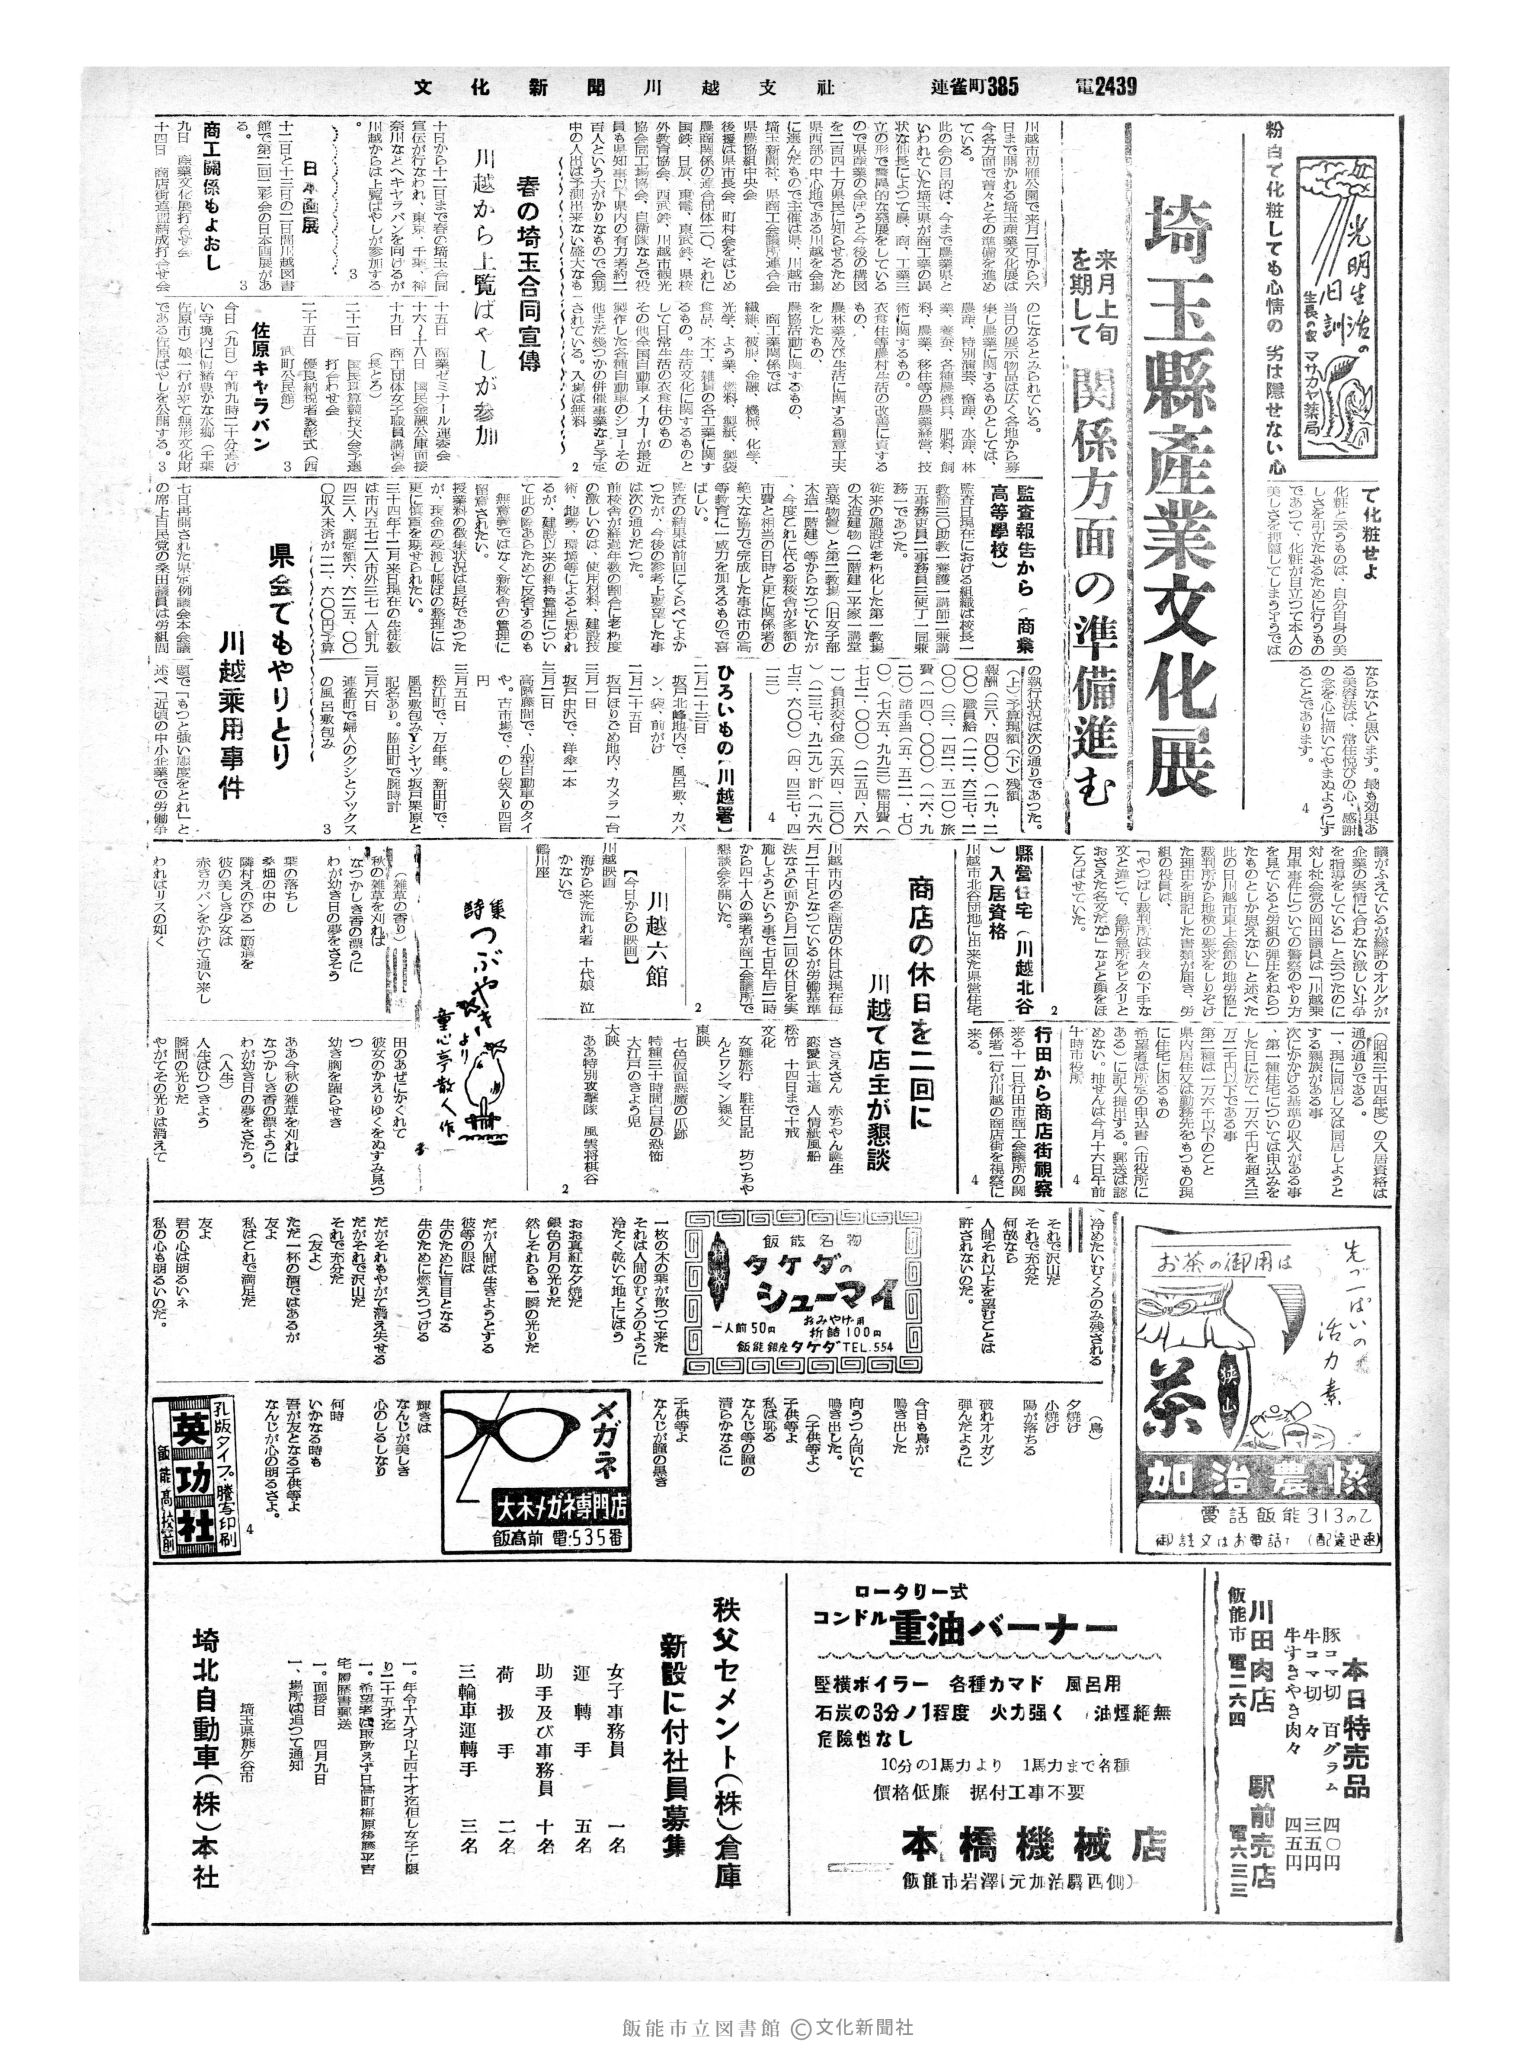 文化新聞 川越支社 連雀町385 電2439
光明生活の日訓
生長の家 マサカヤ薬局
粉白で化粧しても心情の劣は隠せない心で化粧せよ
化粧と云うものは、自分自身の美
しさを引立たせるために行うもの
であつて、化粧が目立つて本人の
美しさを押隠してしまう予うでは
ならないと思います。最も効果あ
る美容法は、常住悦びの心、感謝
の念を心に描いてやまぬようにす
ることであります。 4
埼玉縣產業文化展
来月上旬を期して 関係方面の準備進む
川越市初雁公園で来月二日から六
日まで開かれる埼玉産業文化展は
今各方面で着々とその準備を進め
ている。
此の会の目的は、今まで農業県と
いわれていた埼玉県が商工業の異
状な伸長によつて農、商、工業三
立の形で驚異的な発展をしている
ので県産業の全ぼうと今後の構図
を二百四十万県民に知らせるため
県西部の中心地である川越を会場
に選んだもので主催は県、川越市
埼玉新聞社、県商工会議所連合会
県農協組中央会
後援は県市長会、町村会をはじめ
農商関係の連合団体二〇、それに
国鉄、日放、東電、東武鉄、県校
外教育協会、西武鉄、川越市観光
協会同工場協会、自衛隊などで役
員も県知事以下県内の有力者約二
百人という大がかりなもので会期
中の人出は予測出来ない盛大なも
のになるとみられている。
当日の展示物品は広く各地から募
集し農業に関するものとしては、
農産、特別演芸、畜産、水産、林
業、養蚕、各種農機具、肥料、飼
料、農薬、移住等の農業経営、技
術に関するもの。
衣食住等農村生活の改善に資する
もの、
農林業及び生活に関する創意工夫
をしたもの、
農協活動に関するもの、
商工業関係では
繊維、被服、金融、機械、化学、
光学、よう業、燃料、製紙、製袋
食品、木工、雑貨の各工業に関す
るもの。生活文化に関するものと
して日常生活の衣食住のもの
その他全国自動車メーカーが最近
製作した各種自動車のショーその
他まだ幾つかの併催事業など予定
されている。入場は無料 2
春の埼玉合同宣傳
川越から上覧ばやしが参加
十日から十二日まで春の埼玉合同
宣伝が行なわれ、東京、千葉、神
奈川などへキヤラバンを向けるが
川越からは上覧ばやしが参加する
。 3
日本画展
十二日と十三日の二日間川越図書
館で第二回二彩会の日本画展があ
る。 3
商工關係もよおし
九日 産業文化展打合せ会
十四日 商店街連盟結成打合せ会
十五日 商業ゼミナール運委会
十六〜十八日 国民金融公庫面接
十九日 商工団体女子職員講習会
(長とろ)
二十二日 国民珠算競技大会予選
打合わせ会
二十五日 優良納税者表彰式(西
武町公民館) 3
佐原キャラバン
今日(九日)午前九時二十分過け
い寺境内に情緒豊かな水郷(千葉
佐原市)娘一行が来て無形文化財
である佐原ばやしを公開する。 3
監査報告から(商業高等學校)
監査日現在における組織は校長一
教諭三〇助教一養護一講師二兼講
五事務吏員二事務員三使丁一同兼
務一であつた。
従来の施設は老朽化した第一教場
の木造建物(二階建一平家一講堂
音楽物置)と第二教場(旧女子部
木造二階建)等からなつていたが
、今度これに代る新校舎が多額の
市費と相当の日時と更に関係者の
絶大な協力で完成した事は市の高
等教育に一威力を加えるもので喜
ばしい。
監査の結果は前回にくらべてよか
つたが、今後の参考上要望した事
は次の通りだつた。
前校舎が経過年数の割合に老朽度
の激しいのは、使用材料、建設技
術、地勢、環境等によると思われ
るが、建設以来の維持管理につい
て此の際あらためて反省するのも
無意義ではなく新校舎の管理に
留意されたい。
授業料の徴集状況は良好であつた
が、現金の受渡し帳ぼの整理には
更に慎重を期せられたい。
三十四年十二月末日現在の生徒数
は市内五七二人市外三七一人計九
四三人、調定額六、六二五、〇〇
〇収入未済が一二、六〇〇円予算
の執行状況は次の通りであつた。
(上)予算現額(下)残額
報酬(三八、四〇〇)(一九、二
〇〇)職員給(一二、六三七、一
〇〇)(三、一四二、五一〇)旅
費(一四〇、〇〇〇)(一六、九
二〇)諸手当(五、五二一、七〇
〇)(七六五、九九三)需用費(
七七二、〇〇〇)(二五四、八六
一)負担交付金(五六四、三〇〇
)(二三七、九二九)計(一九六
七三、六〇〇)(四、四三七、四
一三) 4
ひろいもの【川越署】
二月二十三日
坂戸北峰地内で、風呂敷、カバ
ン、袋、前がけ
二月二十五日
坂戸ほりでめ地内、カメラ一台
三月一日
坂戸中沢で、洋傘一本
三月二日
高階藤間で、小型自動車のタイ
や。古市場で、のし袋入り四百
円
三月五日
松江町で、万年筆。新田町で、
風呂敷包みYシヤツ坂戸栗原と
記名あり。脇田町で腕時計
三月六日
連雀町で婦人のクシとソックス
の風呂敷包み 3
県会でもやりとり
川越乗用事件
七日再開された県定例議会本会議
の席上自民党の桑田議員は労組問
題で「もつと強い態度をとれ」と
述べ「近頃の中小企業での労働争
議がふえているが総評のオルグが
企業の実情に合わない激しい斗争
を指導をしている」と云つたのに
対し社会党の岡田議員は「川越乗
用車事件についての警察のやり方
を見ていると労組の弾圧をねらつ
たものとしか思えない」と述べた
此の日川越市東上会館の地労協に
裁判所から地検の要求をしりぞけ
た理由を明記した書類が届き、労
組の役員は、
「やつばし裁判所は我々の下手な
文と違つて、急所急所をピタリと
おさえた名文だな」などと顔をほ
ころばせていた。 2
縣営住宅(川越北谷)入居資格
川越市北谷団地に出来た県営住宅
(昭和三十四年度)の入居資格は
次の通りである。
一、現に同居し又は同居しようと
する親族がある事
次にかかげる基準の収入がある事
、第一種住宅については申込みを
した日に於て一万六千円を超え三
万二千円以下である事
第二種は一万六千以下のこと
県内居住又は勤務先をもつもの現
に住宅に困るもの
希望者は所定の申込書(市役所に
ある)に記入提出する。郵送は認
めない。抽せんは今月十六日午前
十時市役所 4
行田から商店街視察
来る十一日行田市商工会議所の関
係者一行が川越の商店街を視察に
来る。 4
商店の休日を二回に
川越で店主が懇談
川越市内の各商店の休日は現在毎
月二十日となつているが労働基準
法などの面から月二回の休日を実
施しようという事で七日午后二時
から四十人の業者が商工会議所で
懇談会を開いた。 2
川越六館
【今日からの映画】
川越映画
海から来た流れ者 十代娘 泣
かないで
鶴川座
さざえさん 赤ちやん誕生
恋愛武士道 人情紙風船
松竹 十四日まで十戒
文化
女難旅行 駐在日記 坊つちや
んとワンマン親父
東映
七色仮面悪魔の爪跡
特種三十時間白昼の恐怖
大江戸のきよう児
大映
ああ特別攻撃隊 風雲将棋谷 2
特集 つぶやきより
童心亭散人作
(雑草の香り)
秋の雑草を刈れば
なつかしき香の漂うに
わが幼き日の夢をさそう
葉の落ちし
桑畑の中の
隣村えのびる一筋道を
彼の美しき少女は
赤きカバンをかけて通い来し
われはリスの如く
田のあぜにかくれて
彼女のかえりゆくをぬすみ見つ
つ
幼き胸を躍らせき
ああ今秋の雑草を刈れば
なつかしき香の漂ように
わが幼き日の夢をさたう。
(人生)
人生はひつきよう
瞬間の光りだ
やがてその光りは消えて
冷めたいむくろのみ残される
それで沢山だ
それで充分だ
何故なら
人間それ以上を望むことは
許されないのだ。
一枚の木の葉が散つて来た
それは人間のむくろのように
冷たく乾いて地上にはう
おお真紅な夕焼だ
銀色の月の光りだ
然しそれらも一瞬の光りだ
だが人間は生きようとする
彼等の眼は
生のために盲目となる
生のために燃えつづける
だがそれもやがて消え失せる
だがそれで沢山だ
それで充分だ
(友よ)
ただ一杯の酒ではあるが
友よ
私はこれで満足だ
友よ
君の心は明るいネ
私の心も明るいのだ。
(鳥)
夕焼け
小焼け
陽が落ちる
破れオルガン
弾んだように
今日も鳥が
鳴き出した
向うつん向いて
鳴き出した。
(子供等よ)
子供等よ
私は恥る
なんじ等の瞳の
清らかなるに
子供等よ
なんじが瞳の黒き
輝きは
なんじが美しき
心のしるしなり
何時
いかなる時も
吾が友となる子供等よ
なんじが心の明るさよ。 4
飯能名物
タケダのシューマイ
一人前50円
おみやげ用折詰100円
飯能銀座タケダTEL.554
先づ一ぱいの活力素
お茶の御用は
狭山茶
加治農協
電話飯能313の乙
御註文はお電話で(配達迅速)
メガネ
大木メガネ専門店
飯高前 電:535番
孔版タイプ・謄写印刷
英功社
飯能高校前
本日特売品
豚コマ切 百グラム 四〇円
牛コマ切 々 三五円
牛すきやき肉々 四五円
川田肉店 駅前売店
飯能市 電二六四 電六三三
ロータリー式
コンドル重油バーナー
堅横ボイラー 各種カマド 風呂用
石炭の3分ノ1程度 火力強く 油煙絕無
危險性なし
10分の1馬力より 1馬力まで各種
價格低廉 据付工事不要
本橋機械店
飯能市岩澤(元加治驛西側)
秩父セメント(株)倉庫
新設に付社員募集
女子事務員 一名
運轉手 五名
助手及び事務員 十名
荷扱手 二名
三輪車運轉手 三名
一。年令十八才以上四十才迄但し女子に限
り二十五才迄
一。希望者は取敢えず日高町梅原後藤平吉
宅履歴書郵送
一。面接日 四月九日
一、場所は追つて通知
埼玉県熊ケ谷市
埼北自動車(株)本社
飯能市立図書館 ©文化新聞社